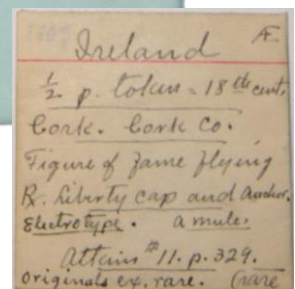 Ireland Æ
½ p. token = 18th cent.
Cork. Cork Co.
Figure of Fame flying
R. Liberty cap and Anchor.
Electrotype. a mule.
Atkins #11. p. 329.
originals ex. rare. (rare